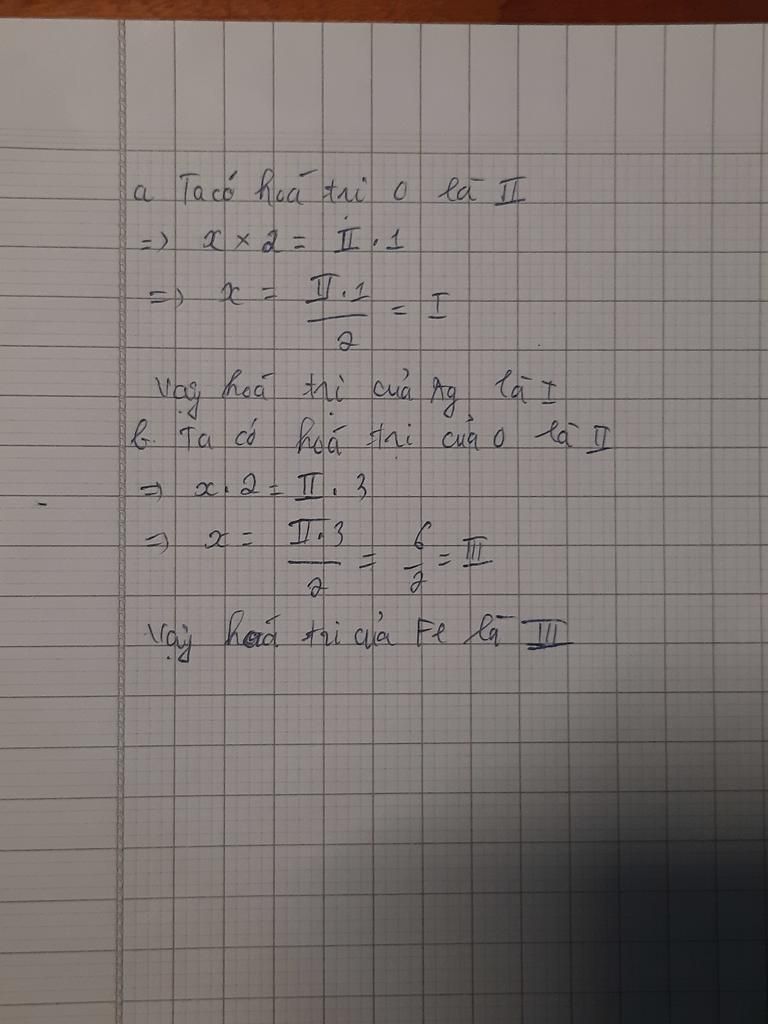 a Ta có hoá trị O là II
=> x × 2 = II . 1
=> x = II . 1 / 2 = I
Vậy hoá trị của Ag là I
b. Ta có hoá trị của O là II
=> x . 2 = II . 3
=> x = II . 3 / 2 = 6 / 2 = III
Vậy hoá trị của Fe là III